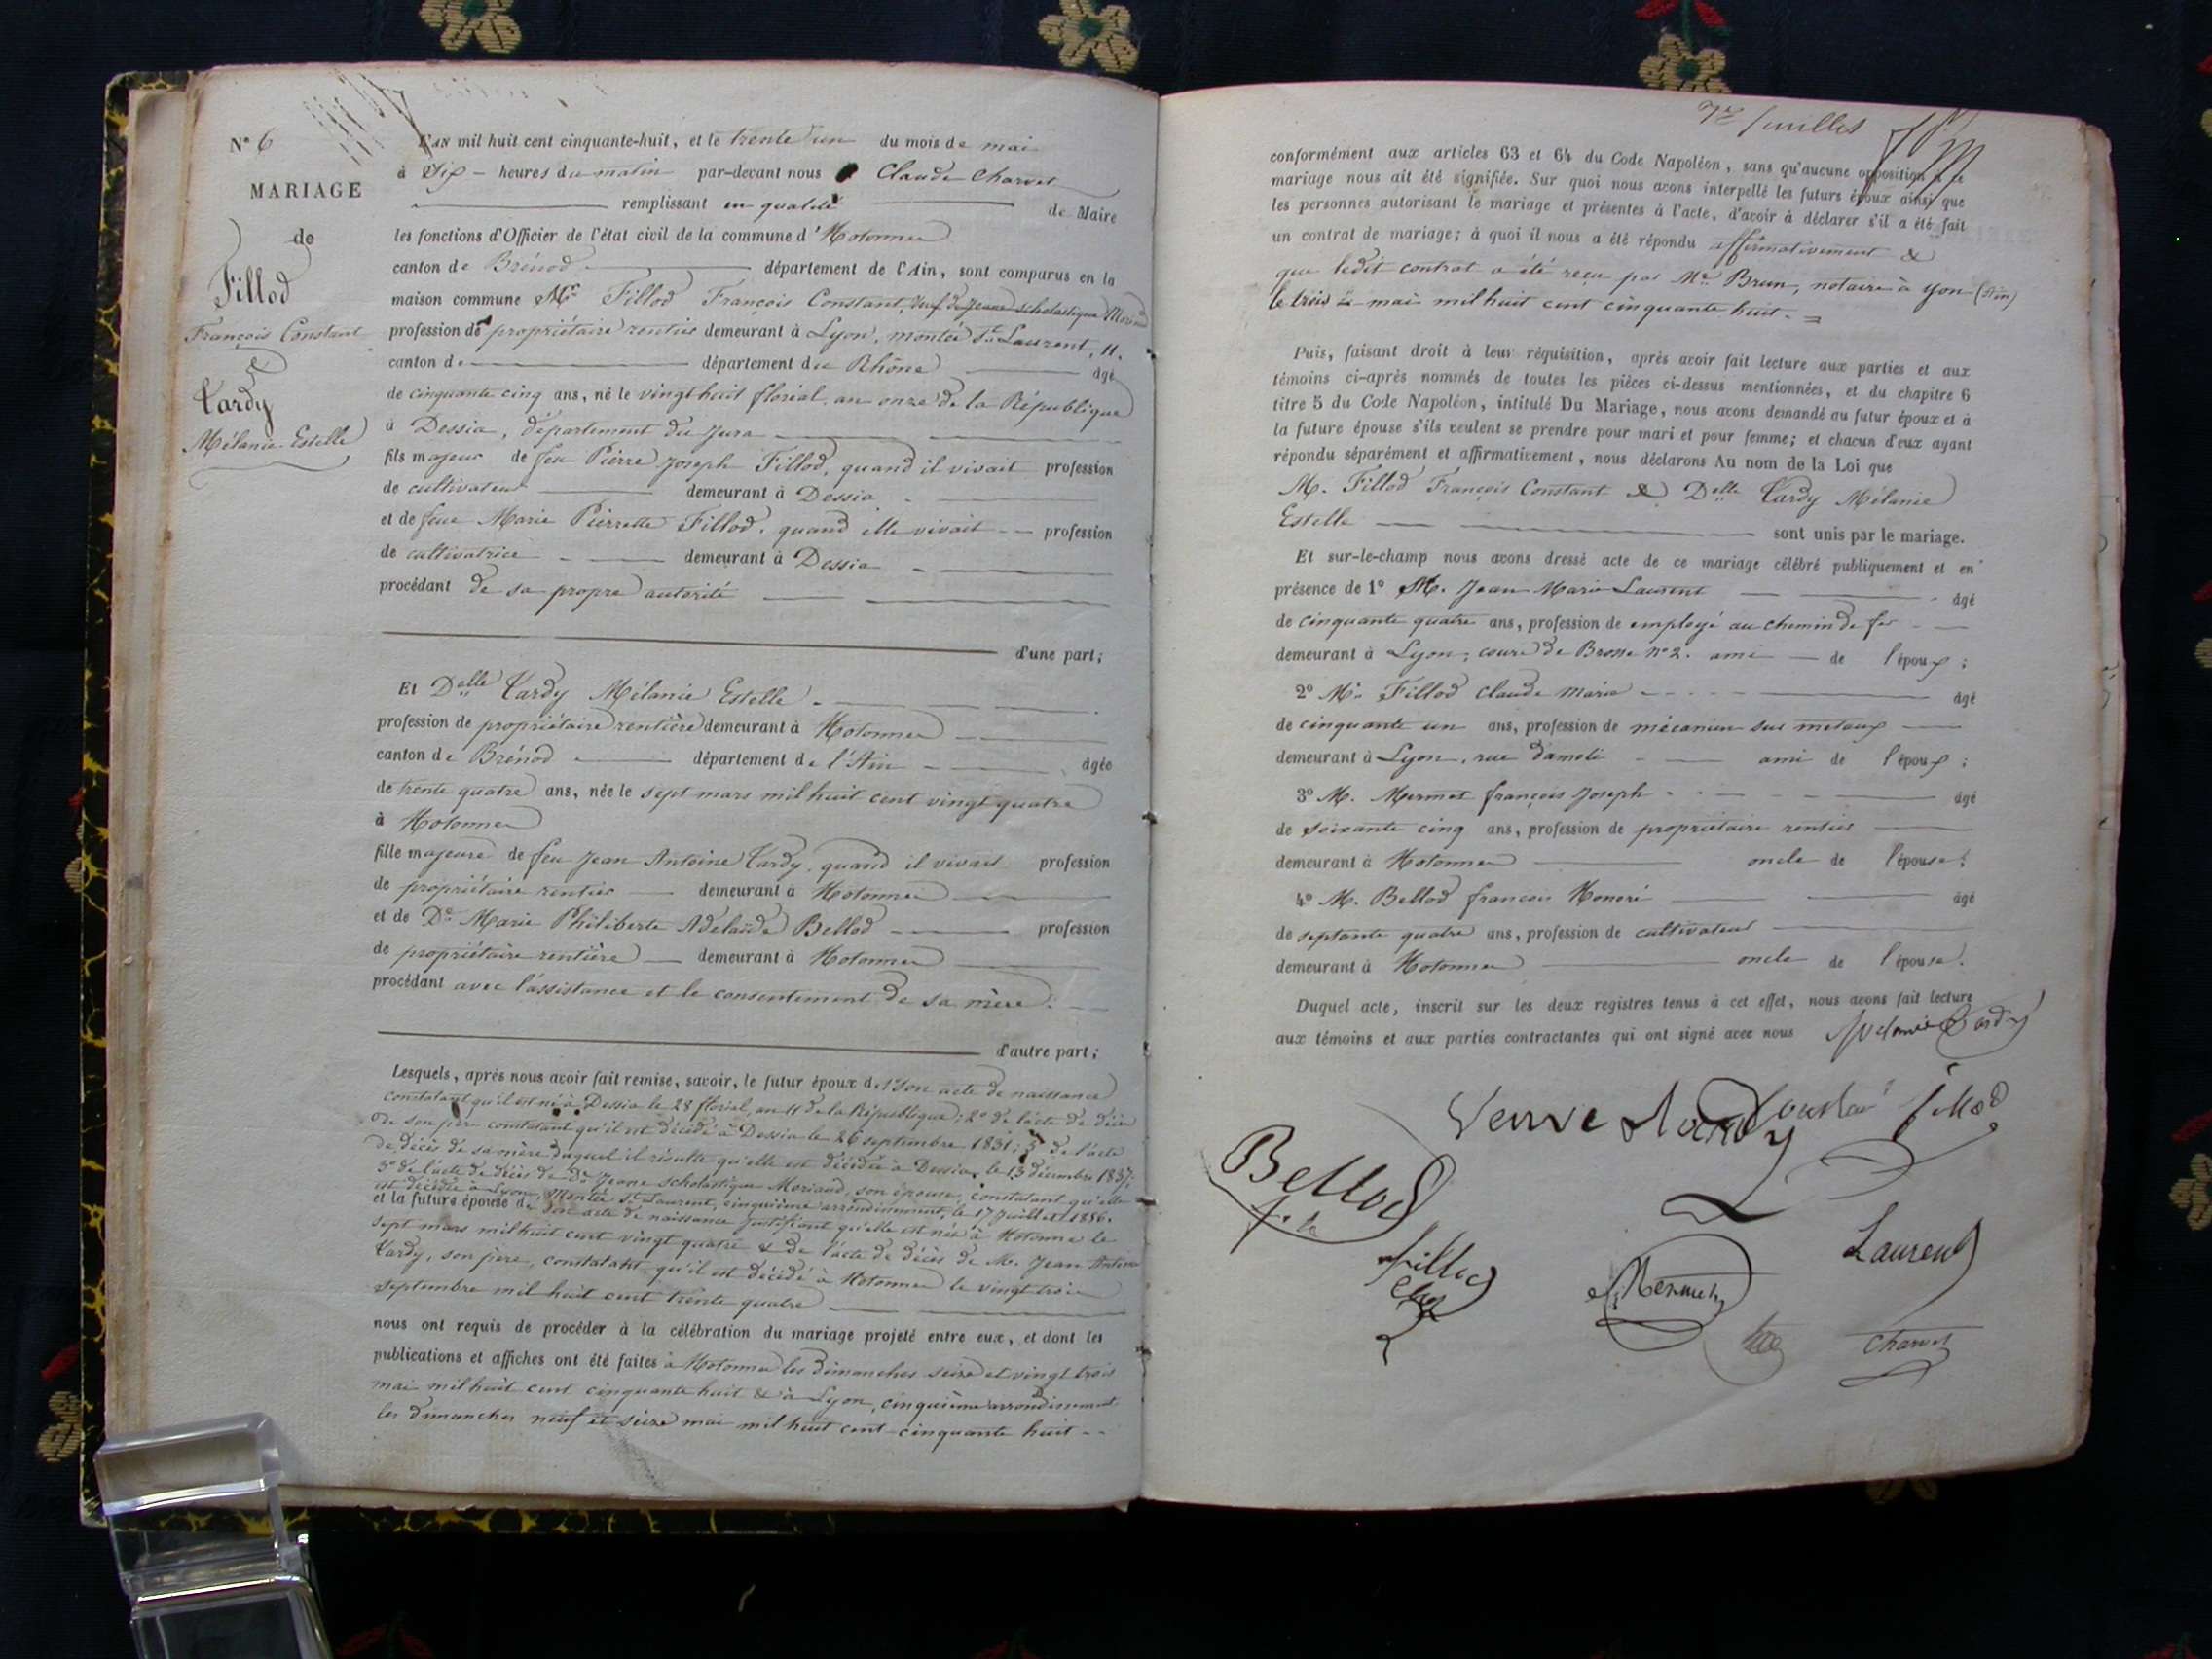 N° 6
MARIAGE
de
Fillod
François Constant
&
Tardy
Mélanie Estelle
L'AN mil huit cent cinquante-huit, et le trente un du mois de mai
à six heures du matin par-devant nous Claude Charvet
remplissant en qualité de Maire
les fonctions d'Officier de l'état civil de la commune d'Hotonnes
canton de Brénod département de l'Ain, sont comparus en la
maison commune Mr Fillod François Constant, veuf de Jeanne Scholastique
profession de propriétaire rentier demeurant à Lyon, montée St Laurent, 11.
canton de département du Rhône âgé
de cinquante cinq ans, né le vingt huit floréal an onze de la République
à Dessia, département du Jura
fils majeur de feu Pierre Joseph Fillod, quand il vivait profession
de cultivateur demeurant à Dessia
et de feue Marie Pierrette Fillod, quand elle vivait profession
de cultivatrice demeurant à Dessia
procédant de sa propre autorité
d'une part;
Et Delle Tardy Mélanie Estelle
profession de propriétaire rentière demeurant à Hotonnes
canton de Brénod département de l'Ain âgée
de trente quatre ans, née le sept mars mil huit cent vingt quatre
à Hotonnes
fille majeure de feu Jean Antoine Tardy, quand il vivait profession
de propriétaire rentier demeurant à Hotonnes
et de De Marie Philiberte Adelaïde Bellod profession
de propriétaire rentière demeurant à Hotonnes
procédant avec l'assistance et le consentement de sa mère.
d'autre part;
Lesquels, après nous avoir fait remise, savoir, le futur époux de 1° son acte de naissance
constatant qu'il est né à Dessia le 28 floréal, an 11 de la République; 2° de l'acte de décès
de son père constatant qu'il est décédé à Dessia le 26 septembre 1831; 3° de l'acte
de décès de sa mère duquel il résulte qu'elle est décédée à Dessia, le 13 décembre 1837;
3° de l'acte de décès de De Jeanne Scholastique Moriaud, son épouse, constatant qu'elle
est décédée à Lyon, montée St Laurent, cinquième arrondissement, le 17 juillet 1856.
et la future épouse de son acte de naissance justifiant qu'elle est née à Hotonnes le
sept mars mil huit cent vingt quatre & de l'acte de décès de M. Jean Antoine
Tardy, son père, constatant qu'il est décédé à Hotonnes le vingt trois
septembre mil huit cent trente quatre
nous ont requis de procéder à la célébration du mariage projeté entre eux, et dont les
publications et affiches ont été faites à Hotonnes les dimanches seize et vingt trois
mai mil huit cent cinquante huit & à Lyon, cinquième arrondissement
les dimanches neuf et seize mai mil huit cent cinquante huit
feuillet
conformément aux articles 63 et 64 du Code Napoléon, sans qu'aucune opposition à ce
mariage nous ait été signifiée. Sur quoi nous avons interpellé les futurs époux ainsi que
les personnes autorisant le mariage et présentes à l'acte, d'avoir à déclarer s'il a été fait
un contrat de mariage; à quoi il nous a été répondu affirmativement &
que ledit contrat a été reçu par Me Brun, notaire à Yon (Ain)
le trois mai mil huit cent cinquante huit.
Puis, faisant droit à leur réquisition, après avoir fait lecture aux parties et aux
témoins ci-après nommés de toutes les pièces ci-dessus mentionnées, et du chapitre 6
titre 5 du Code Napoléon, intitulé Du Mariage, nous avons demandé au futur époux et à
la future épouse s'ils veulent se prendre pour mari et pour femme; et chacun d'eux ayant
répondu séparément et affirmativement, nous déclarons Au nom de la Loi que
M. Fillod François Constant & Delle Tardy Mélanie
Estelle sont unis par le mariage.
Et sur-le-champ nous avons dressé acte de ce mariage célébré publiquement et en
présence de 1° M. Jean Marie Laurent âgé
de cinquante quatre ans, profession de employé au chemin de fer
demeurant à Lyon, cours de Brosse n° 2. ami de l'époux;
2° Mr Fillod Claude Marie âgé
de cinquante un ans, profession de mécanicien sur métaux
demeurant à Lyon, rue ami de l'époux;
3° M. Mermet françois Joseph âgé
de soixante cinq ans, profession de propriétaire rentier
demeurant à Hotonnes oncle de l'épouse;
4° M. Bellod francois Honoré âgé
de septante quatre ans, profession de cultivateur
demeurant à Hotonnes oncle de l'épouse.
Duquel acte, inscrit sur les deux registres tenus à cet effet, nous avons fait lecture
aux témoins et aux parties contractantes qui ont signé avec nous Mélanie Tardy
Veuve Tardy Constant fillod
Bellod
Laurent
fillod
Mermet
Charvet